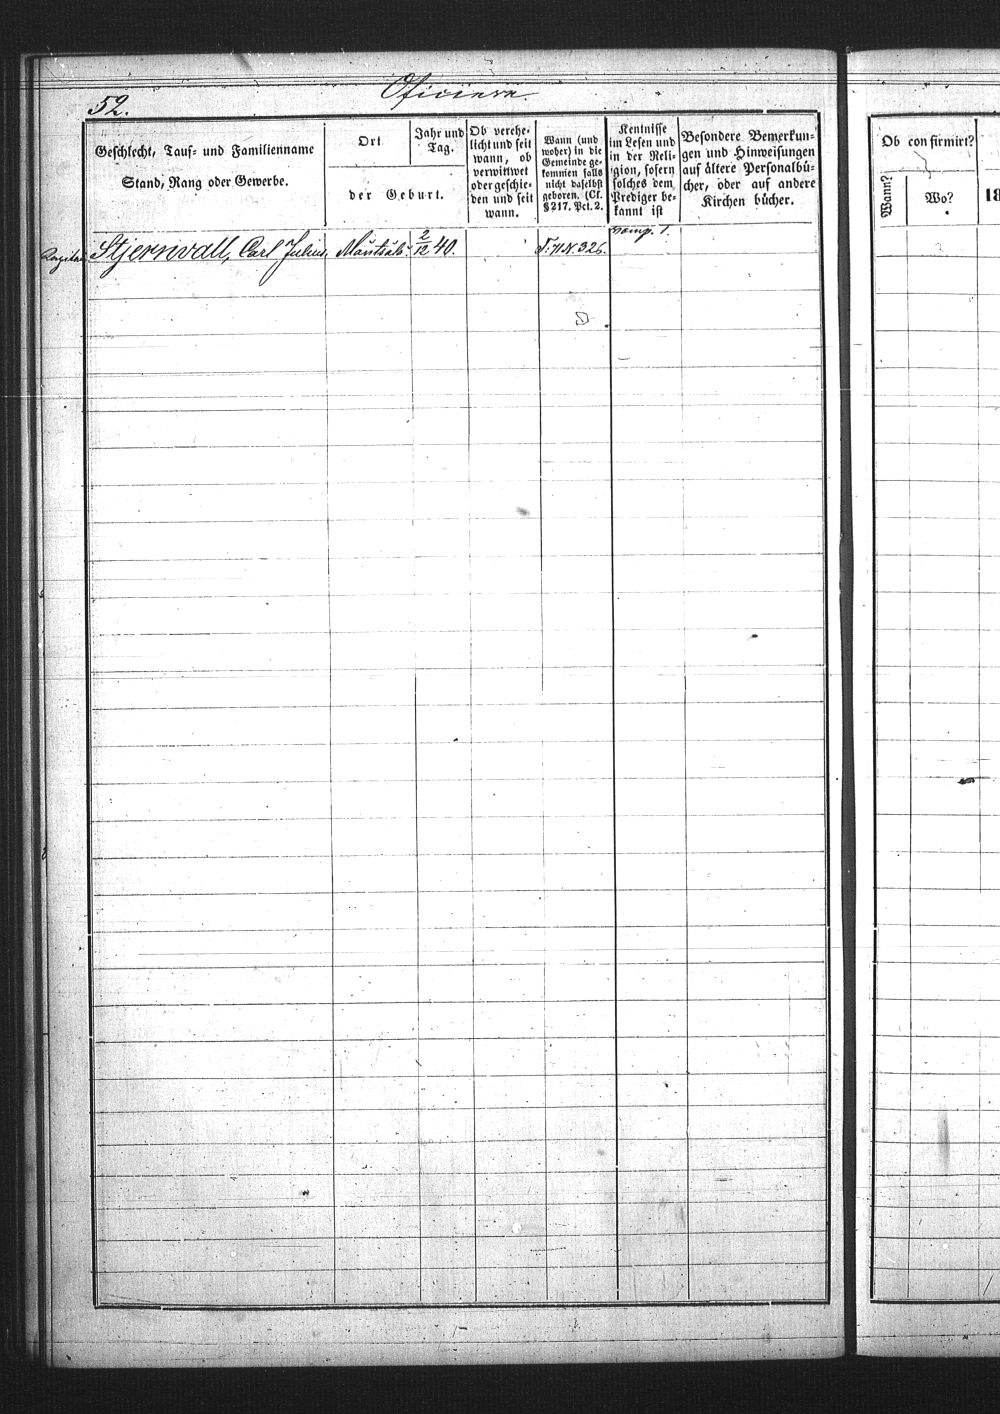 52.
Oficiere.
Geschlecht, Tauf- und Familienname
Stand, Rang oder Gewerbe.
Ort
Jahr und
Tag.
der Geburt.
Ob verehe-
licht und seit
wann, ob
verwittwet
oder geschie-
den und seit
wann.
Wann (und
woher) in die
Gemeinde ge-
kommen falls
nicht daselbst
geboren. (Cf.
§ 217. Pct. 2.
Kentnisse
im Lesen und
in der Reli-
gion, sofern
solches dem
Prediger be-
kannt ist
Besondere Bemerkun-
gen und Hinweisungen
auf ältere Personalbü-
cher, oder auf andere
Kirchen bücher.
Ob confirmirt?
Wann?
Wo?
18
Stjernvall, Carl Julius, Mäntsälä. 2/12 40. N. 326.